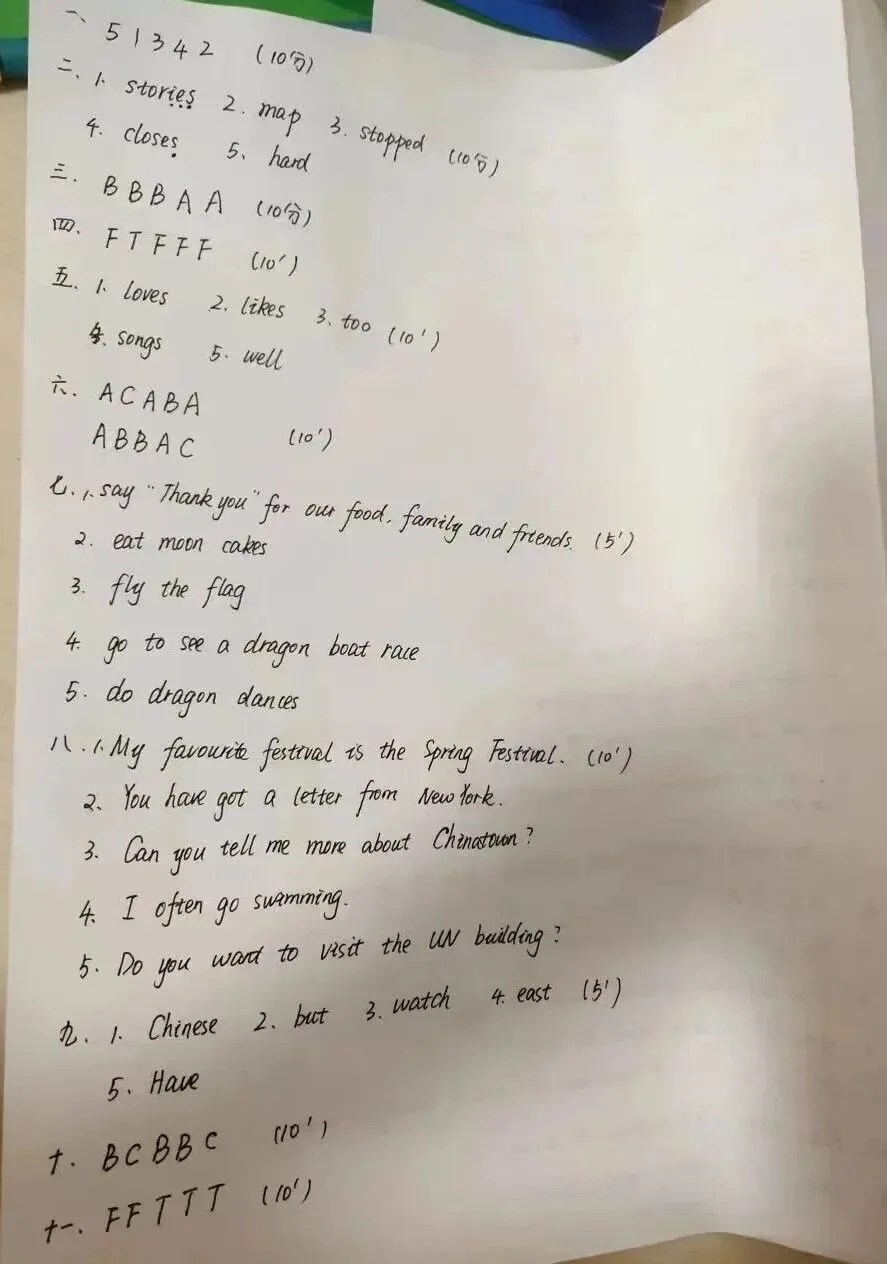 一、 5 1 3 4 2 (10分)
二、1、stories 2. map 3. stopped (10分)
4. closes 5、hard
三. B B B A A (10分)
四、F T F F F (10')
五、1、loves 2、likes 3、too (10')
4. songs 5. well
六、A C A B A
A B B A C (10')
七、1、say "Thank you" for our food, family and friends. (5')
2. eat moon cakes
3. fly the flag
4. go to see a dragon boat race
5. do dragon dances
八、1、My favourite festival is the Spring Festival. (10')
2、You have got a letter from New York.
3. Can you tell me more about Chinatown?
4. I often go swimming.
5. Do you want to visit the UN building?
九、1、Chinese 2. but 3. watch 4. east (5')
5、Have
十、B C B B C (10')
十一、F F T T T (10')